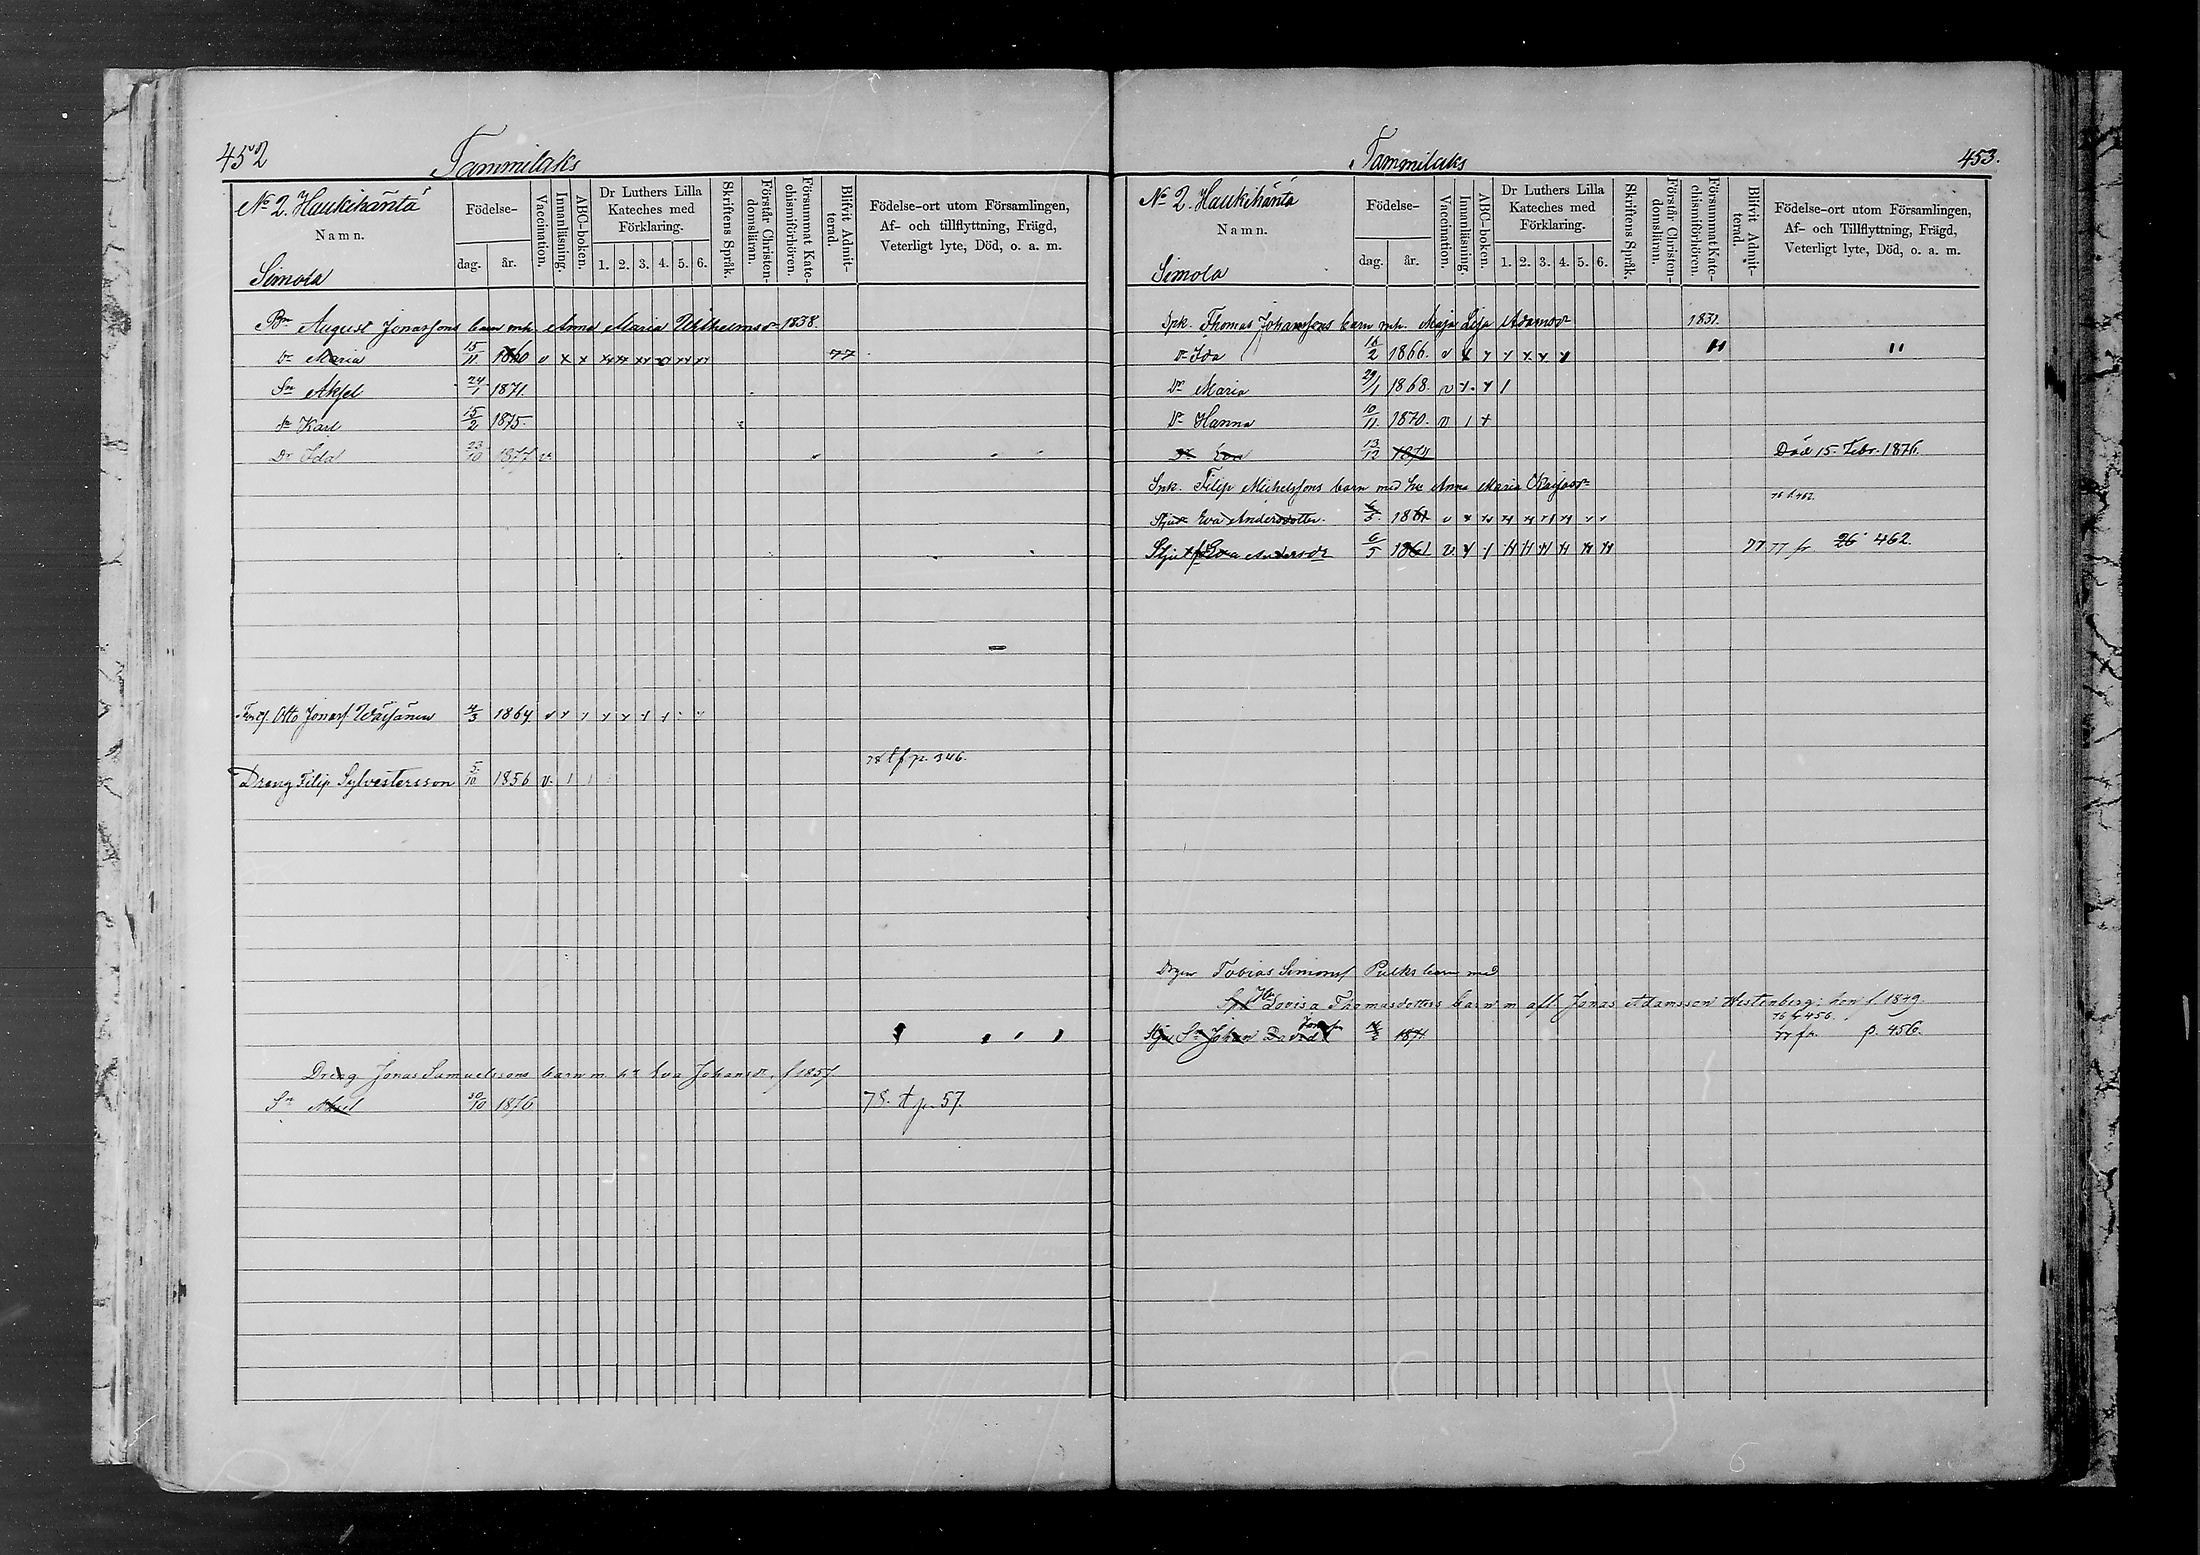 452
Tammilaks
No 2. Haukihäntä
Namn.
Simola
Födelse-
dag.
år.
Vaccination.
Innanläsning.
ABC-boken.
Dr Luthers Lilla
Kateches med
Förklaring.
1. 2. 3. 4. 5. 6.
Skriftens Språk.
Förstår Christen-
domslänn.
Försummat Kate-
chismiförhören.
Blifvit Admit-
terad.
Födelse-ort utom Församlingen,
Af- och tillflyttning, Frägd,
Veterligt lyte, Död, o. a. m.
August Jonassons barn mh. Anna Maria Wilhelmsdr 1838.
Dr Maria 15/11 1860 v x x 77
Sn Aksel 24/1 1871.
Sn Karl 15/2 1875.
Dr Ida 23/10 1877 v.
Otto Jonass. Wäisänen 4/3 1864
78 t f p. 346.
Dräng Filip Sylvestersson 5/10 1856 v. 1 1
Dräng Jonas Samuelssons barn m. hu Eva Johansdr, f 1857
Sn Aksel 30/10 1876 78. t p. 57.
453.
Tammilaks
No 2. Haukihäntä
Namn.
Simola
Födelse-
dag.
år.
Vaccination.
Innanläsning.
ABC-boken.
Dr Luthers Lilla
Kateches med
Förklaring.
1. 2. 3. 4. 5. 6.
Skriftens Språk.
Förstår Christen-
domslänn.
Försummat Kate-
chismiförhören.
Blifvit Admit-
terad.
Födelse-ort utom Församlingen,
Af- och Tillflyttning, Frägd,
Veterligt lyte, Död, o. a. m.
Inh. Thomas Johanssons barn mh. Maja Lisa Adamsdr 1831.
Dr Ida 16/2 1866. v
Dr Maria 29/1 1868. v
Dr Hanna 10/11 1870. v 1 +
Dr Eva 13/12 1874 Död 15. Febr. 1876.
Inh. Filip Michelssons barn med hu Anna Maria
76 f. 462.
Eva Andersdotter. 6/5. 1861
Eva Andersdr 6/5 1861 v 77 77 fr 26 462.
Tobias Simonss Pulks barn med
Hu Lovisa Thomasdotters barn m afl. Jonas Adamsson Westenberg; hon f. 1849.
76 f. 456.
Sn Johan David 1871 77 fr. p. 456.